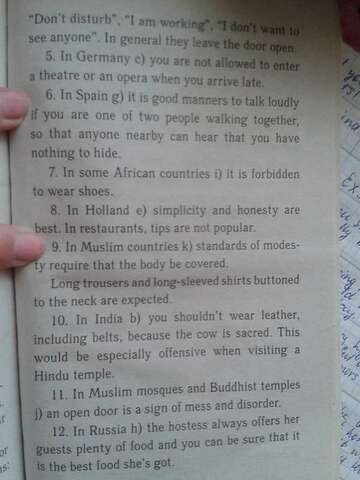 "Don't disturb", "I am working", "I don't want to
see anyone". In general they leave the door open.
5. In Germany c) you are not allowed to enter
a theatre or an opera when you arrive late.
6. In Spain g) it is good manners to talk loudly
if you are one of two people walking together,
so that anyone nearby can hear that you have
nothing to hide.
7. In some African countries i) it is forbidden
to wear shoes.
8. In Holland e) simplicity and honesty are
best. In restaurants, tips are not popular.
9. In Muslim countries k) standards of modes-
ty require that the body be covered.
Long trousers and long-sleeved shirts buttoned
to the neck are expected.
10. In India b) you shouldn't wear leather,
including belts, because the cow is sacred. This
would be especially offensive when visiting a
Hindu temple.
11. In Muslim mosques and Buddhist temples
j) an open door is a sign of mess and disorder.
12. In Russia h) the hostess always offers her
guests plenty of food and you can be sure that it
is the best food she's got.